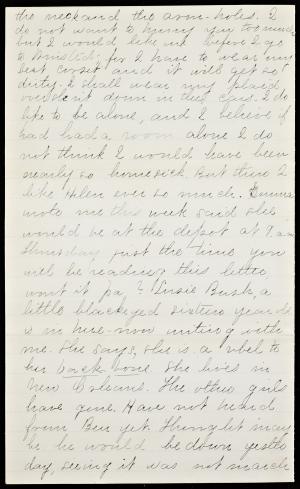 the neck and the arm-holes. I
do not want to hurry you too much
but I would like it before I go
to for I have to wear my
best corset and it will get so
dirty. I shall wear my plaid
down in the cars. I do
like to be alone, and I believe if
had had a room alone I do
not think I would have been
nearly so homesick. But then I
like Helen ever so much. Emma
wrote me this week said she
would be at the depot at 9 a.m
Thursday just the time you
will be reading this letter,
wont it pa? Susie Busk, a
little blackeyed sixteen year old
is in here now writing with
me. She says, she is a rebel to
her back bone. She lives in
New Orleans. The other girls
have gone. Have not heard
from Ben yet. Thought may
be he would be down yester
day, seeing it was not much